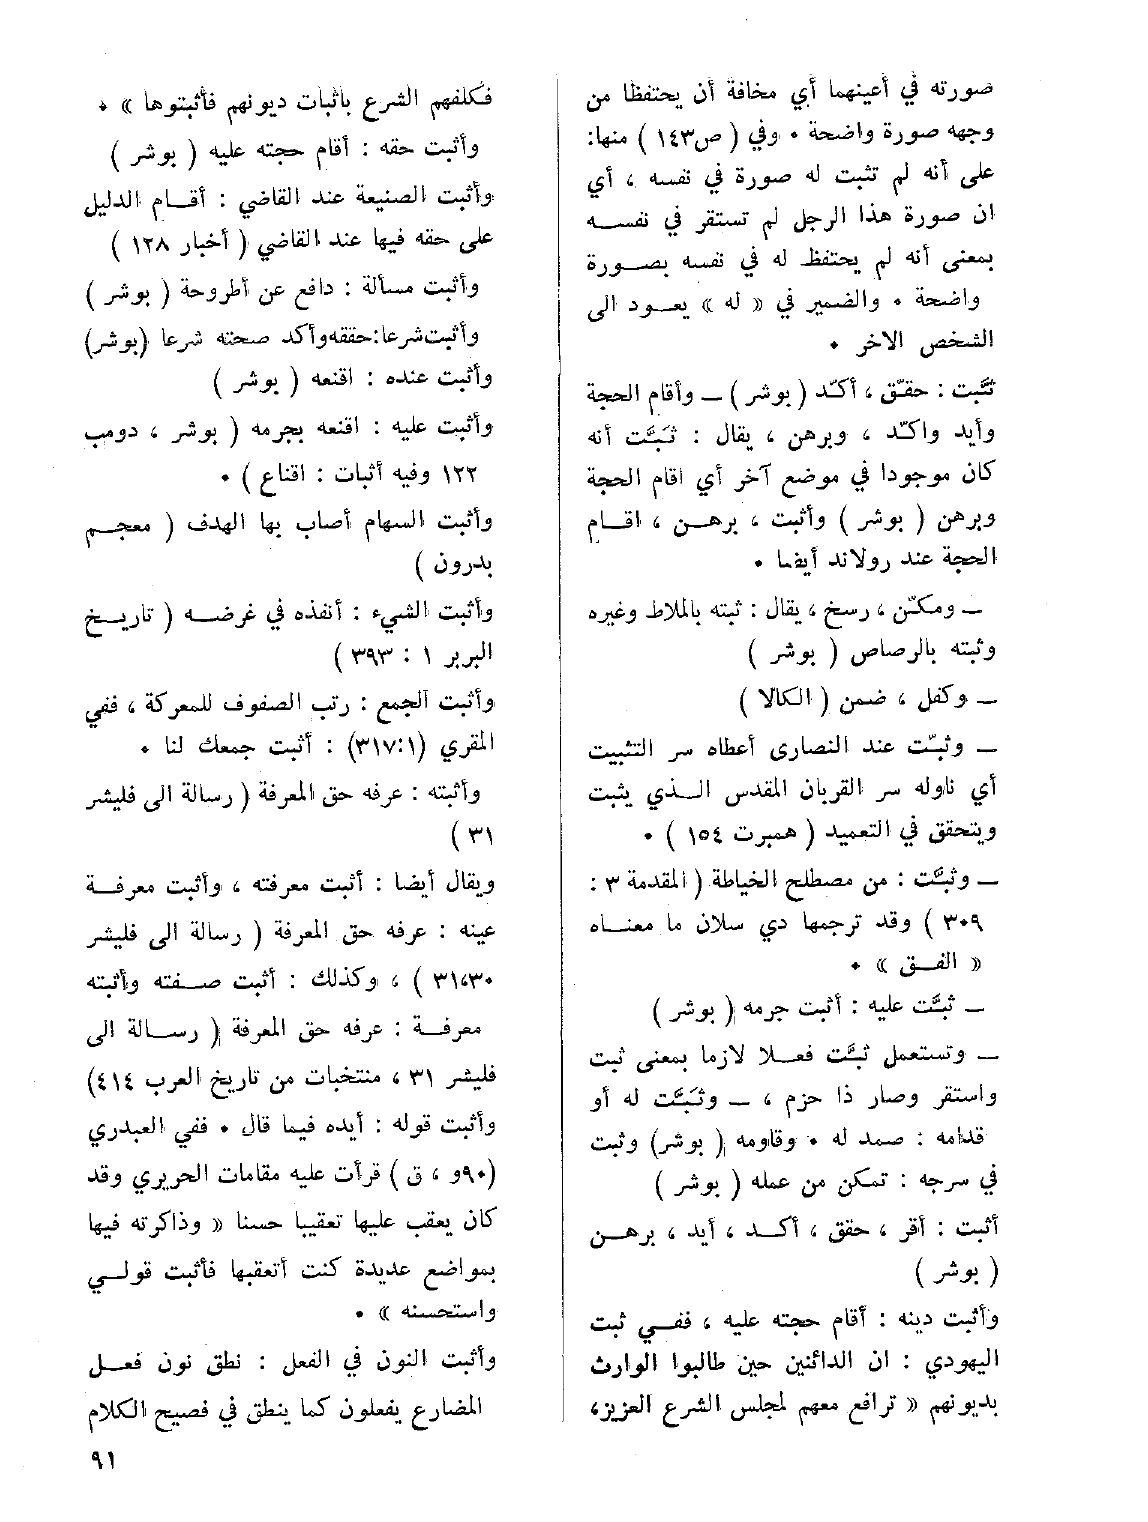 صورته في أعينهما أي مخافة أن يحتفظا من
وجهه صورة واضحة • وفي ( ص١٤٣ ) منها:
على أنه لم تثبت له صورة في نفسه ، أي
ان صورة هذا الرجل لم تستقر في نفســه
بمعنى أنه لم يحتفظ له في نفسه بصــورة
واضحة • والضمير في « له » يعــود الى
الشخص الاخر •
ثبَّت : حقق ، أكّد ( بوشر ) ــ وأقام الحجة
وأيد واكّد ، وبرهن ، يقال : ثبَّت أنه
كان موجودا في موضع آخر أي اقام الحجة
وبرهن ( بوشر ) وأثبت ، برهــن ، اقــام
الحجة عند رولاند أيضا •
ــ ومكّن ، رسخ ، يقال : ثبته بالملاط وغيره
وثبته بالرصاص ( بوشر )
ــ وكفل ، ضمن ( الكالا )
ــ وثبّت عند النصارى أعطاه سر التثبيت
أي ناوله سر القربان المقدس الــذي يثبت
ويتحقق في التعميد ( همبرت ١٥٤ ) •
ــ وثبَّت : من مصطلح الخياطة ( المقدمة ٣ :
٣٠٩ ) وقد ترجمها دي سلان ما معنــاه
« الفــق » •
ــ ثبَّت عليه : أثبت جرمه ( بوشر )
ــ وتستعمل ثبَّت فعــلا لازما بمعنى ثبت
واستقر وصار ذا حزم ، ــ وثبَّت له أو
قدامه : صمد له • وقاومه ( بوشر) وثبت
في سرجه : تمكن من عمله ( بوشر )
أثبت : أقر ، حقق ، أكــد ، أيد ، برهــن
( بوشر )
وأثبت دينه : أقام حجته عليه ، ففــي ثبت
اليهودي : ان الدائنين حين طالبوا الوارث
بديونهم « ترافع معهم لمجلس الشرع العزيز،
فكلفهم الشرع باثبات ديونهم فأثبتوها » •
وأثبت حقه : أقام حجته عليه ( بوشر )
وأثبت الصنيعة عند القاضي : أقــام الدليل
على حقه فيها عند القاضي ( أخبار ١٢٨ )
وأثبت مسألة : دافع عن أطروحة ( بوشر )
وأثبت شرعا:حققه وأكد صحته شرعا (بوشر)
وأثبت عنده : اقنعه ( بوشر )
وأثبت عليه : اقنعه بجرمه ( بوشر ، دومب
١٢٢ وفيه أثبات : اقناع ) •
وأثبت السهام أصاب بها الهدف ( معجــم
بدرون )
وأثبت الشيء : أنفذه في غرضــه ( تاريــخ
البربر ١ : ٣٩٣ )
وأثبت الجمع : رتب الصفوف للمعركة ، ففي
المقري (٣١٧:١) : أثبت جمعك لنا •
وأثبته : عرفه حق المعرفة ( رسالة الى فليشر
٣١ )
ويقال أيضا : أثبت معرفته ، وأثبت معرفــة
عينه : عرفه حق المعرفة ( رسالة الى فليشر
٣١،٣٠ ) ، وكذلك : أثبت صــفته وأثبته
معرفــة : عرفه حق المعرفة ( رســالة الى
فليشر ٣١ ، منتخبات من تاريخ العرب ٤١٤)
وأثبت قوله : أيده فيما قال • ففي العبدري
(٩٠و ، ق ) قرأت عليه مقامات الحريري وقد
كان يعقب عليها تعقيبا حسنا « وذاكرته فيها
بمواضع عديدة كنت أتعقبها فأثبت قولــي
واستحسنه » •
وأثبت النون في الفعل : نطق نون فعــل
المضارع يفعلون كما ينطق في فصيح الكلام
٩١